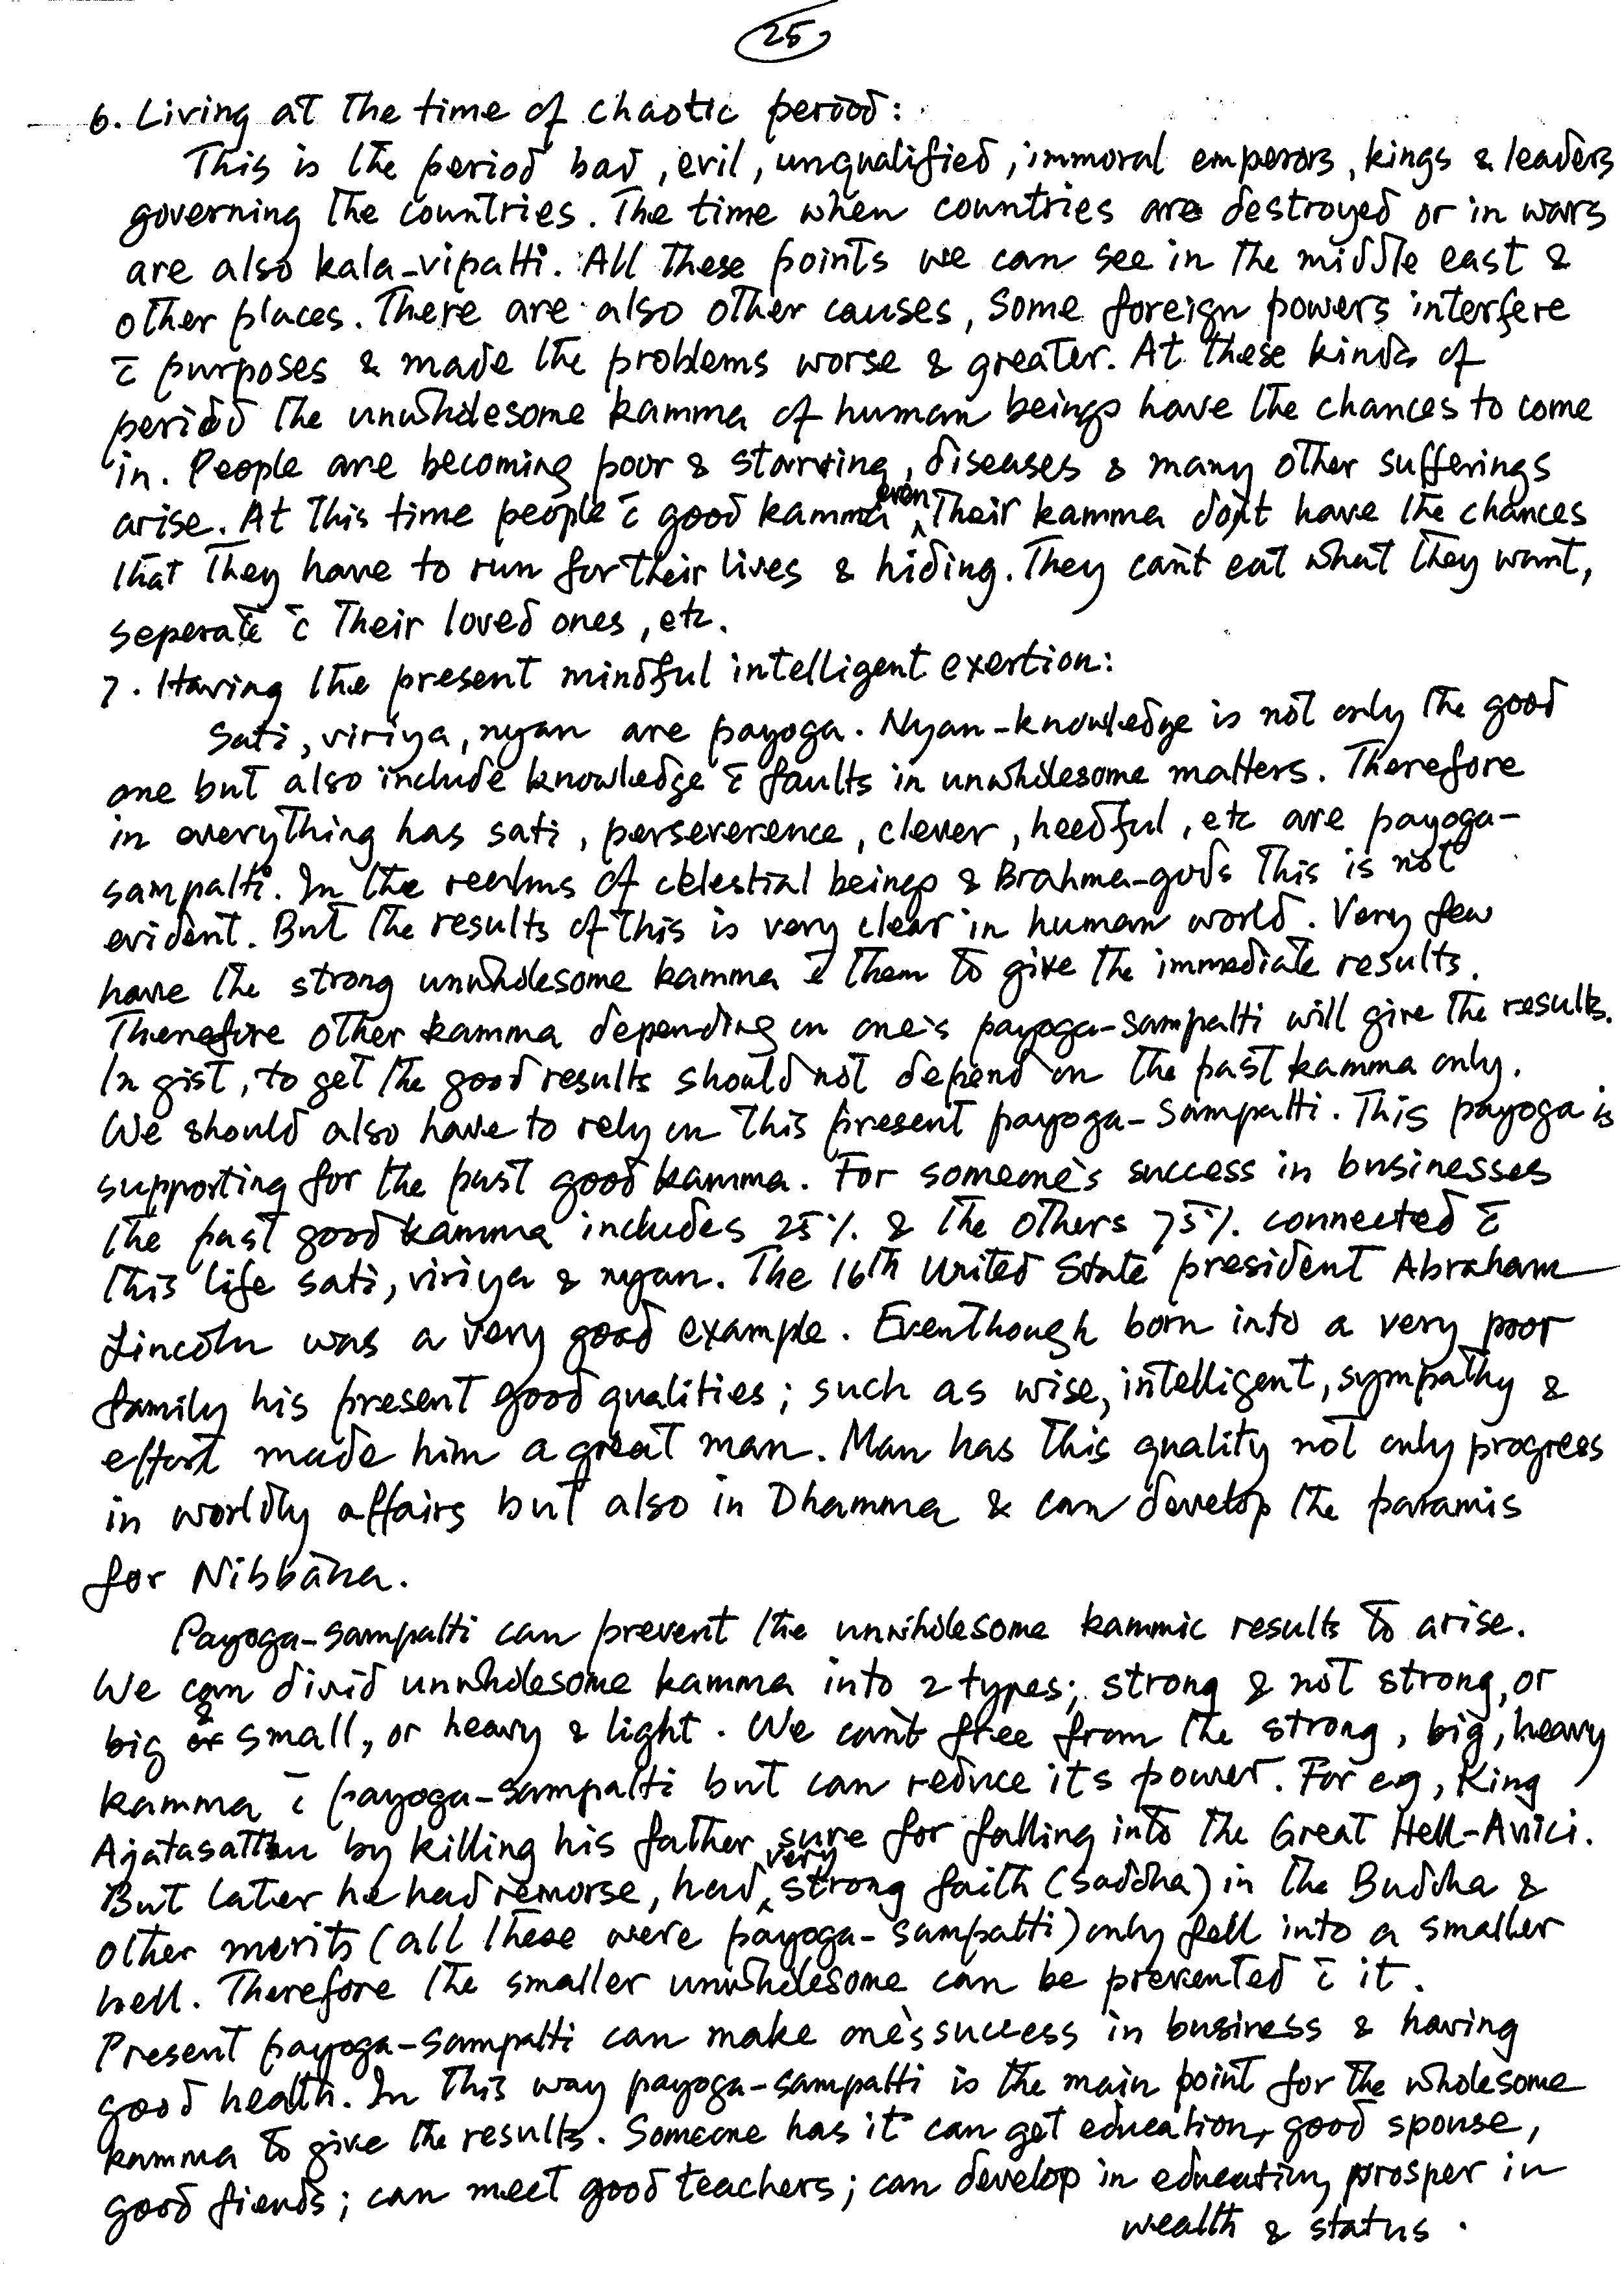 25
6. Living at the time of chaotic period:
This is the period bad, evil, unqualified, immoral emperors, kings & leaders
governing the countries. The time when countries are destroyed or in wars
are also kala-vipatti. All these points we can see in the middle east &
other places. There are also other causes, some foreign powers interfere
c̄ purposes & made the problems worse & greater. At these kinds of
period the unwholesome kamma of human beings have the chances to come
in. People are becoming poor & starving, diseases & many other sufferings
arise. At this time people c̄ good kamma even their kamma don't have the chances
that they have to run for their lives & hiding. They can't eat what they want,
seperate c̄ their loved ones, etc.
7. Having the present mindful intelligent exertion:
Sati, viriya, nyan are payoga. Nyan-knowledge is not only the good
one but also include knowledge c̄ faults in unwholesome matters. Therefore
in everything has sati, perseverence, clever, heedful, etc are payoga-
sampatti. In the realms of celestial beings & Brahma-gods this is not
evident. But the results of this is very clear in human world. Very few
have the strong unwholesome kamma c̄ them to give the immediate results.
Therefore other kamma depending on one's payoga-sampatti will give the results.
In gist, to get the good results should not depend on the past kamma only.
We should also have to rely on this present payoga-sampatti. This payoga is
supporting for the past good kamma. For someone's success in businesses
the past good kamma includes 25% & the others 75% connected c̄
this life sati, viriya & nyan. The 16th United State president Abraham
Lincoln was a very good example. Eventhough born into a very poor
family his present good qualities; such as wise, intelligent, sympathy &
effort made him a great man. Man has this quality not only progress
in worldly affairs but also in Dhamma & can develop the paramis
for Nibbāna.
Payoga-sampatti can prevent the unwholesome kammic results to arise.
We can divid unwholesome kamma into 2 types; strong & not strong, or
big & small, or heavy & light. We can't free from the strong, big, heavy
kamma c̄ payoga-sampatti but can reduce its power. For e.g, King
Ajatasatthu by killing his father sure for falling into the Great Hell-Avici.
But later he had remorse, had very strong faith (saddha) in the Buddha &
other merits (all these were payoga-sampatti) only fell into a smaller
hell. Therefore the smaller unwholesome can be prevented c̄ it.
Present payoga-sampatti can make one's success in business & having
good health. In this way payoga-sampatti is the main point for the wholesome
kamma to give the results. Someone has it can get education, good spouse,
good fiends; can meet good teachers; can develop in education, prosper in
wealth & status.